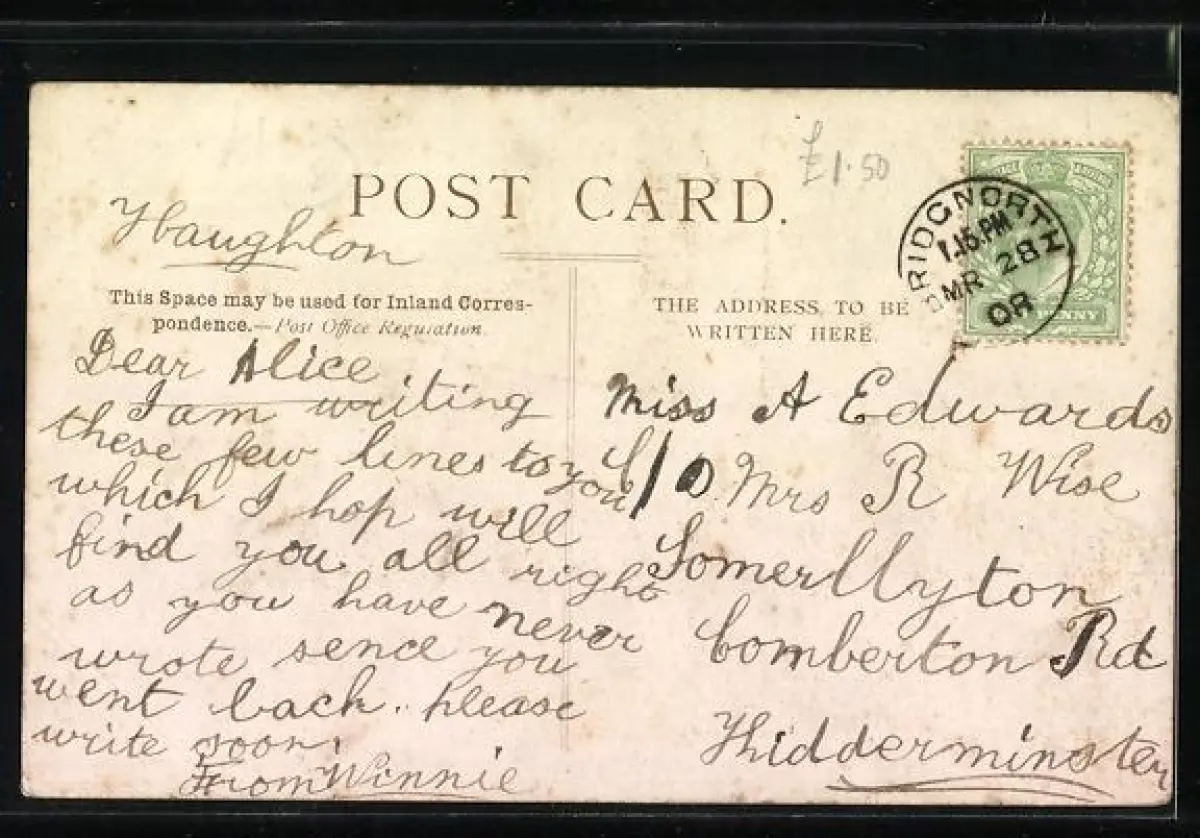 £1.50
POST CARD.
Haughton
This Space may be used for Inland Corres-
pondence.—Post Office Regulation.
Dear Alice
I am writing
these few lines to you
which I hop will
find you all right
as you have never
wrote sence you
went back. please
write soon.
From Winnie
THE ADDRESS TO BE
WRITTEN HERE.
BRIDGNORTH
1.15.PM
MR 28
08
PENNY
Miss A Edwards
C/o Mrs R Wise
Somerllyton
Comberton Rd
Kidderminster